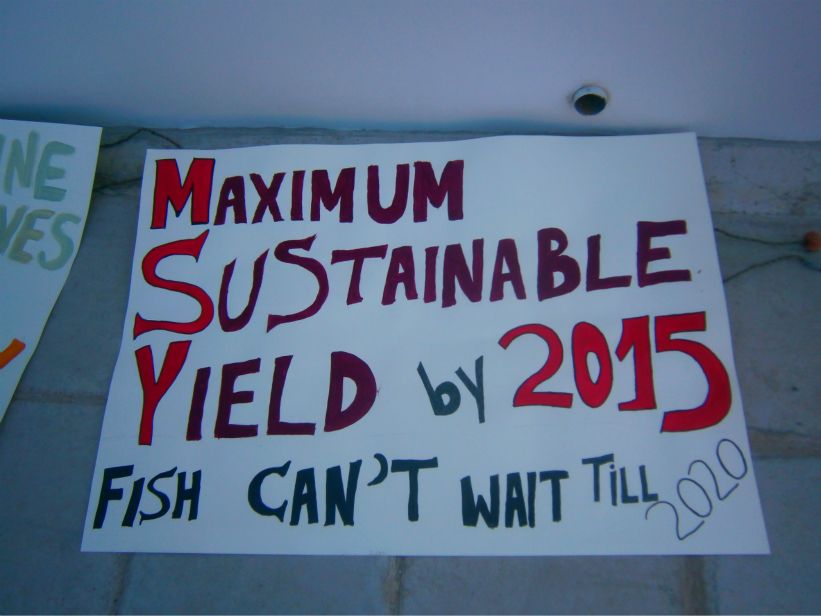 MAXIMUM
SUSTAINABLE
YIELD by 2015
FISH CAN'T WAIT TILL 2020
INE
VES